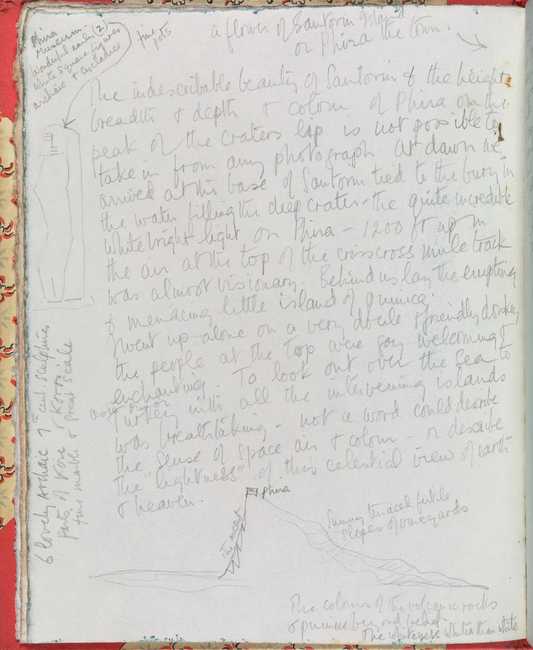 Phira
Museum.
wonderful early (?)
white square figures
archaic & cycladic
fine
pots
a flower of Santorin
or Phira the town.
The indescribable beauty of Santorin & the height
breadth & depth & colour of Phira on the
peak of the craters lip is not possible to
take in from any photograph. At dawn we
arrived at the base of Santorin tied to the buoy in
the water filling the deep crater - the quite incredible
white bright light on Phira - 1200 ft up in
the air at the top of the crisscross mule track
was almost visionary. Behind us lay the erupting
& menacing little island of pumice,
I went up alone on a very docile & friendly donkey
the people at the top were gay welcoming &
enchanting. To look out over the sea to
Turkey with all the intervening islands
was breathtaking - not a word could describe
the "sense of space air & colour - or describe
the "lightness" of this celestial view of earth
& heaven.
6 lovely Archaic 7 cent sculptures
parts of Kore & Kouros
fine marble & great scale
Phira
Sunny terraced fertile
slopes of vineyards
The colours of the volcanic rocks
& pumice
The whitewash whiter than white